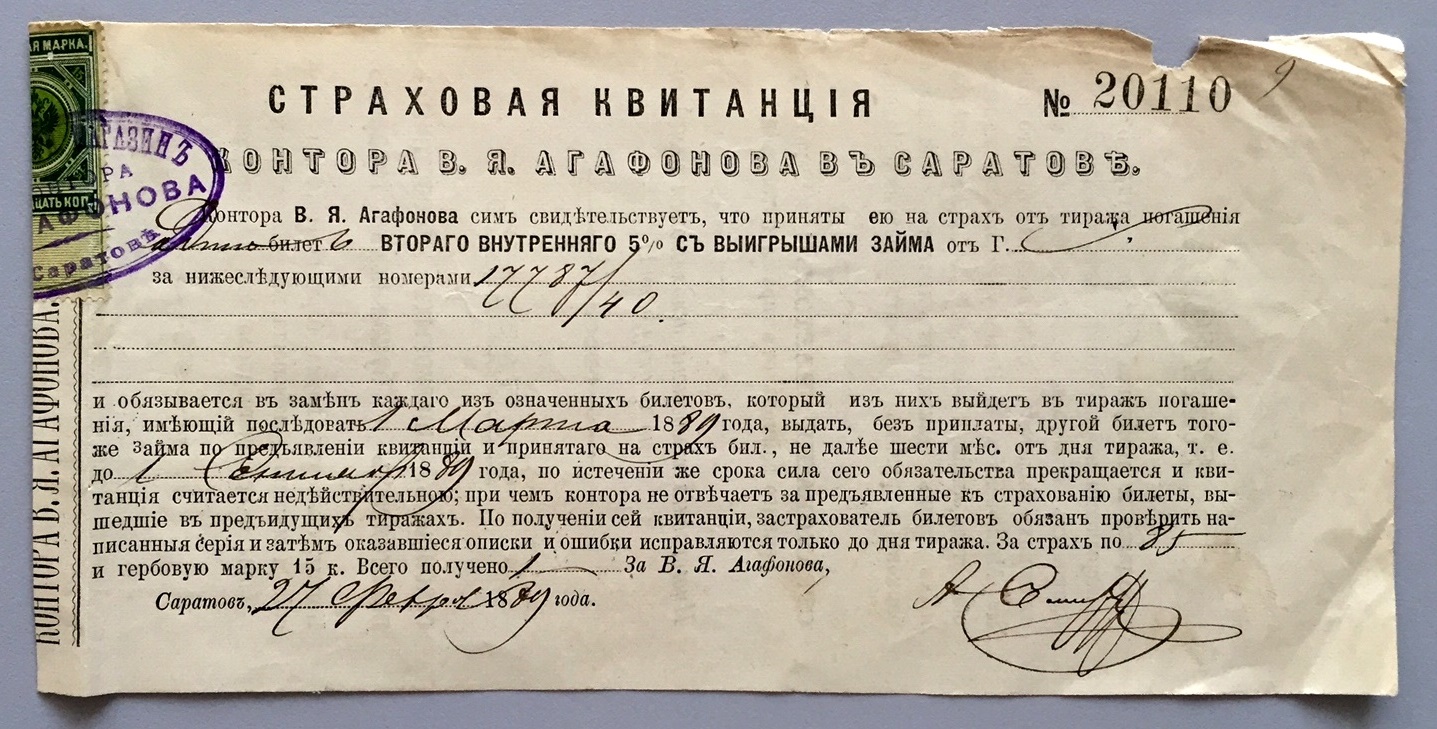 АЯ МАРКА.
СТРАХОВАЯ КВИТАНЦІЯ № 20110
КОНТОРА В. Я. АГАФОНОВА ВЪ САРАТОВѢ.
АГАЗИНЪ
НТОРА
АФОНОВА
Саратовѣ
ДЦАТЬ КОП.
Контора В. Я. Агафонова симъ свидѣтельствуетъ, что приняты ею на страхъ отъ тиража погашенія
билет ВТОРАГО ВНУТРЕННЯГО 5% СЪ ВЫИГРЫШАМИ ЗАЙМА отъ Г.
за нижеслѣдующими номерами 17787/40.
и обязывается въ замѣнъ каждаго изъ означенныхъ билетовъ, который изъ нихъ выйдетъ въ тиражъ погаше-
нія, имѣющій послѣдовать 1 Марта 1889 года, выдать, безъ приплаты, другой билетъ того-
же Займа по предъявленіи квитанціи и принятаго на страхъ бил., не далѣе шести мѣс. отъ дня тиража, т. е.
до 1 Сентября 1889 года, по истеченіи же срока сила сего обязательства прекращается и кви-
танція считается недѣйствительною; при чемъ контора не отвѣчаетъ за предъявленные къ страхованію билеты, вы-
шедшіе въ предъидущихъ тиражахъ. По полученіи сей квитанціи, застрахователь билетовъ обязанъ провѣрить на-
писанныя серія и затѣмъ оказавшіеся описки и ошибки исправляются только до дня тиража. За страхъ по 85
и гербовую марку 15 к. Всего получено 1 За В. Я. Агафонова,
Саратовъ, 27 Февр 1889 года.
КОНТОРА В. Я. АГАФОНОВА.